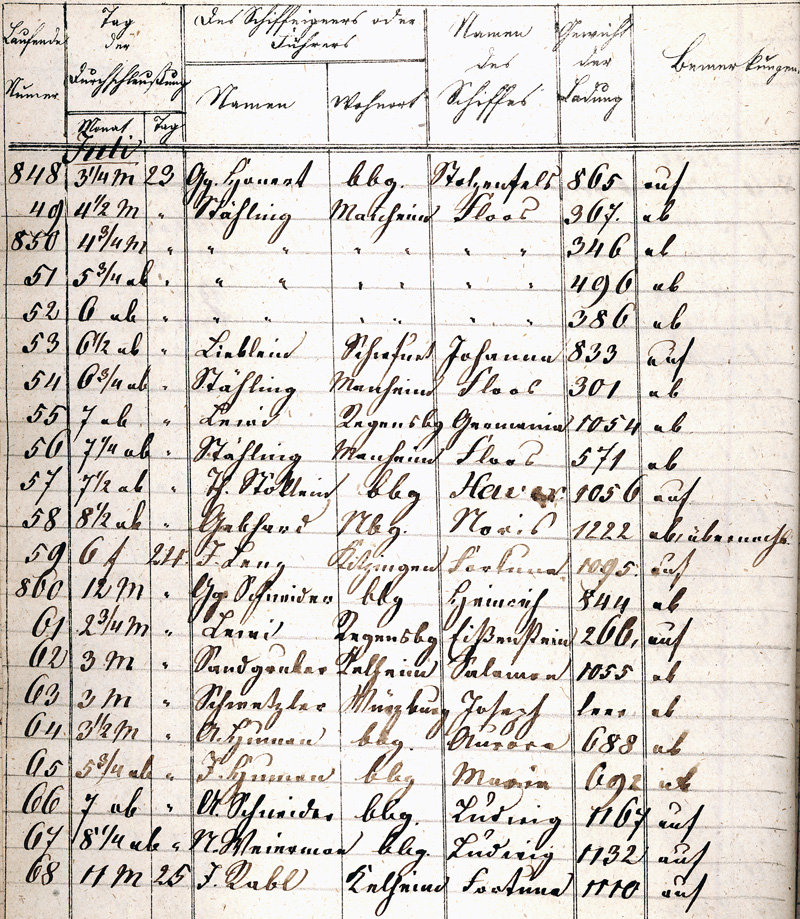 Laufende Numer
Tag der Durchschleußung
Monat Tag
Des Schiffeigners oder Führers
Namen Wohnort
Namen des Schiffes
Gewicht der Ladung
Bemerkungen
Juli
848 3 1/4 M 23 Gg. Honert bbg. Stolzenfels 865 auf
49 4 1/2 M " Stähling Manheim Floos 367. ab
850 4 3/4 M " " " " " " " 346 ab
51 5 3/4 ab " " " " " " " 496 ab
52 6 ab " " " " " " " 386 ab
53 6 1/2 ab " Lieblein Johanna 833 auf
54 6 3/4 ab " Stähling Manheim Floos 301 ab
55 7 ab " Regensbg Germania 1054 ab
56 7 1/4 ab " Stähling Manheim Floos 571 ab
57 7 1/2 ab " bbg 1056 auf
58 8 1/2 ab " Gebhard Nbg. Noris 1222 ab, übernacht
59 6 f 24. J. Leng Kitzingen Fortuna 1095. auf
860 12 M " Gg. Schneider bbg Heinrich 844 ab
61 2 3/4 M " Regensbg Eißenstein 266, auf
62 3 M " Sandgruber Kelheim Salamon 1055 ab
63 3 M " Schmetzler Würzburg Joseph leer ab
64 3 1/2 M " A. Hümen bbg. Aurora 688 ab
65 5 3/4 ab " J. Hümen bbg Maria 692 ab
66 7 ab " A. Schneider bbg. Ludwig 1167 auf
67 8 1/4 ab " N. Weierman bbg. Ludwig 1132 auf
68 11 M 25 J. Rabl Kelheim Fortuna 1110 auf